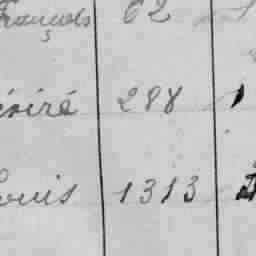 François 62
ésiré 288
ouis 1313